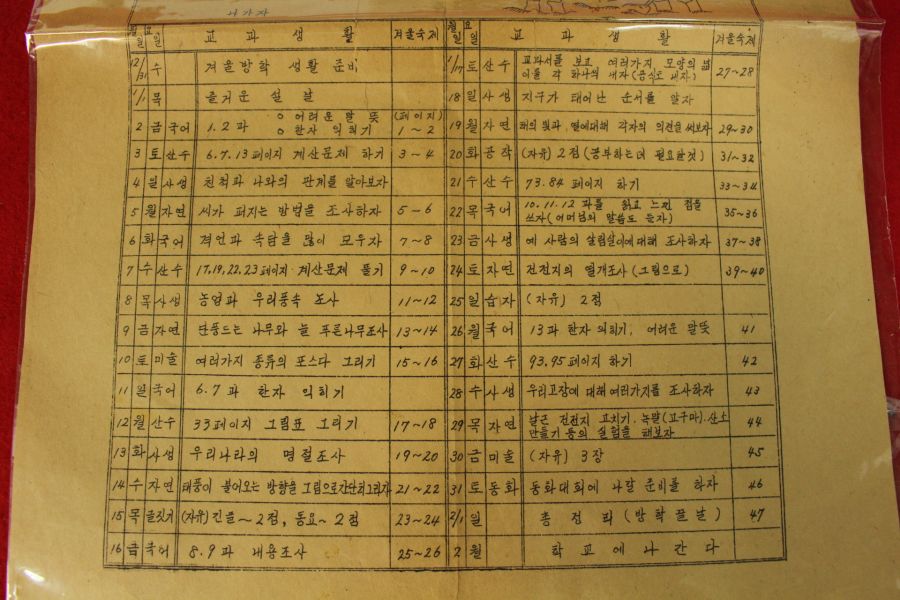 나가자
월 일 요 일 교 과 생 활 겨울숙제
12/31 수 겨울방학 생활 준비
1/1 목 즐거운 설 날
2 금 국어 1.2 과 ○ 어려운 말 뜻 ○ 한자 익히기 (페이지) 1~2
3 토 산수 6.7.13 페이지 계산문제 하기 3~4
4 일 사생 친척과 나와의 관계를 알아보자
5 월 자연 씨가 퍼지는 방법을 조사하자 5~6
6 화 국어 격언과 속담을 많이 모우자 7~8
7 수 산수 17.19.22.23 페이지 계산문제 풀기 9~10
8 목 사생 농업과 우리풍속 조사 11~12
9 금 자연 단풍드는 나무와 늘 푸른나무조사 13~14
10 토 미술 여러가지 종류의 포스다 그리기 15~16
11 일 국어 6.7 과 한자 익히기
12 월 산수 33페이지 그림표 그리기 17~18
13 화 사생 우리나라의 명절조사 19~20
14 수 자연 태풍이 불어오는 방향을 그림으로간단히그리자 21~22
15 목 글짓기 (자유) 긴글~2점, 동요~2점 23~24
16 금 국어 8.9 과 내용조사 25~26
월 일 요 일 교 과 생 활 겨울숙제
1/17 토 산수 교과서를 보고 여러가지 모양의 넓
이를 각 하나씩 내자(공식도 내자) 27~28
18 일 사생 지구가 태어난 순서를 알자
19 월 자연 해의 빛과 열에대해 각자의 의견을 써보자 29~30
20 화 공작 (자유) 2점 (공부하는데 필요한것) 31~32
21 수 산수 73.84 페이지 하기 33~34
22 목 국어 10.11.12 과를 읽고 느낀 점을
쓰자(어머님의 말씀도 듣자) 35~36
23 금 사생 예 사람의 살림살이에대해 조사하자 37~38
24 토 자연 전전지의 열개조사 (그림으로) 39~40
25 일 습자 (자유) 2점
26 월 국어 13과 한자 익히기, 어려운 말뜻 41
27 화 산수 93.95 페이지 하기 42
28 수 사생 우리고장에 대해 여러가지를 조사하자 43
29 목 자연 낡은 건전지 고치기. 녹말(고구마).산소
만들기 등의 실험을 해보자 44
30 금 미술 (자유) 3장 45
31 토 동화 동화대회에 나갈 준비를 하자 46
2/1 일 총 정 리 (방학끝날) 47
2 월 학 교 에 나 간 다